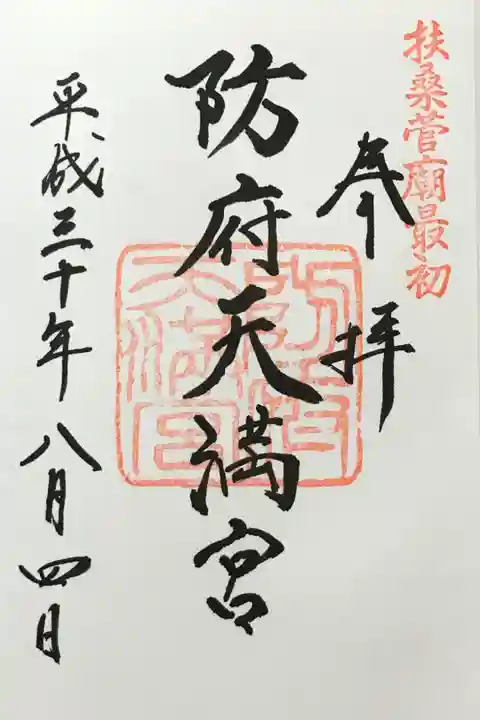 扶桑菅廟最初
奉拝
防府天満宮
平成三十年八月四日
防府天満宮